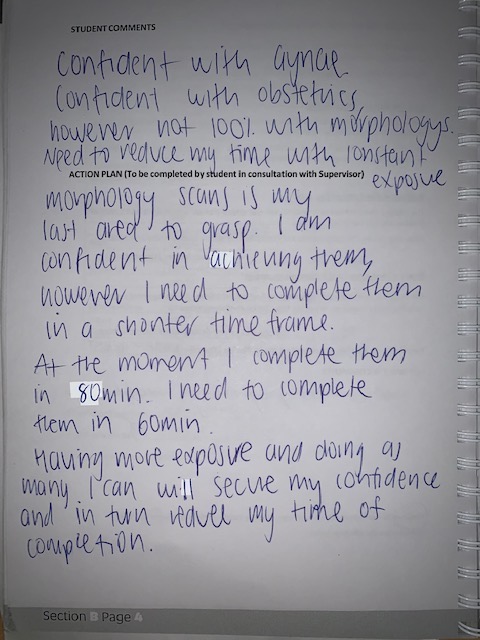 STUDENT COMMENTS
Confident with Gynae
Confident with obstetrics,
however not 100% with morphologys.
Need to reduce my time with constant
exposure
ACTION PLAN (To be completed by student in consultation with Supervisor)
morphology scans is my
last area to grasp. I am
confident in achieving them,
however I need to complete them
in a shorter time frame.
At the moment I complete them
in 80min. I need to complete
them in 60min.
Having more exposure and doing as
many I can will secure my confidence
and in turn reduce my time of
completion.
Section B Page 4